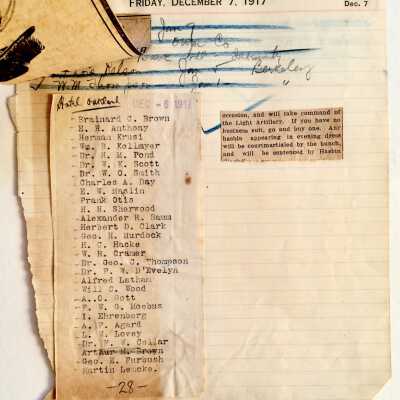 FRIDAY, DECEMBER 7, 1917
Dec. 7
Berkeley
DEC - 6 1917
Brainard C. Brown
E. H. Anthony
Herman Krusi
Wm. B. Kollmyer
Dr. H. M. Pond
Dr. W. K. Scott
Dr. W. O. Smith
Charles A. Day
E. W. Haslin
Frank Otis
H. H. Sherwood
Alexander R. Baum
Herbert D. Clark
Geo. H. Murdock
H. C. Hacke
W. H. Cramer
Dr. Geo. C. Thompson
Dr. F. W. D'Evelyn
Alfred Latham
Will C. Wood
A. O. Gott
F. W. G. Moebus
I. Ehrenberg
A. F. Agard
L. W. Lovey
Dr. F. W. Collar
Arthur M. Brown
Geo. E. Furbush
Martin Lemcke.
-28-
occasion, and will take command of
the Light Artillery. If you have no
business suit, go and buy one. Any
hasbin appearing in evening dress
will be courtmartialed by the bunch,
and will be sentenced by Hasbin